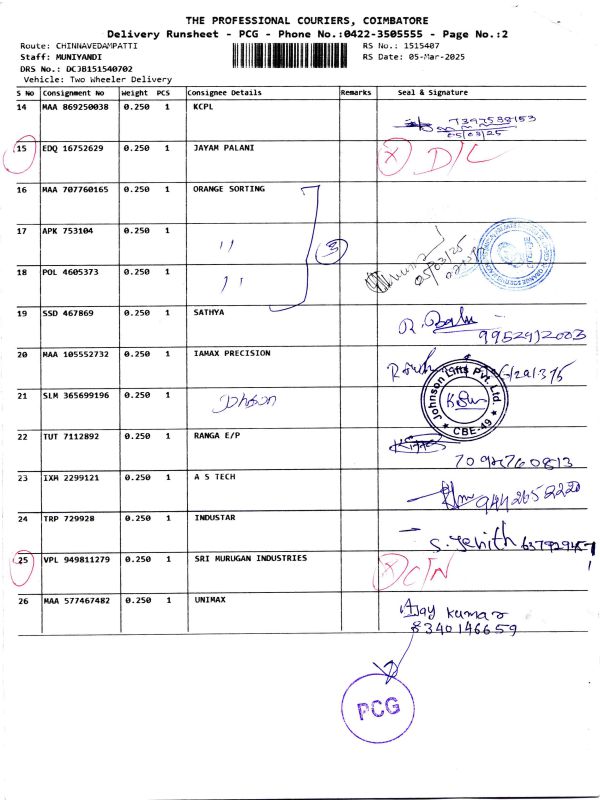 THE PROFESSIONAL COURIERS, COIMBATORE
Delivery Runsheet - PCG - Phone No.:0422-3505555 - Page No.:2
Route: CHINNAVEDAMPATTI RS No.: 1515407
Staff: MUNIYANDI RS Date: 05-Mar-2025
DRS No.: DCJB151540702
Vehicle: Two Wheeler Delivery
S No Consignment No Weight PCS Consignee Details Remarks Seal & Signature
14 MAA 869250038 0.250 1 KCPL
7397588153
05/03/25
15 EDQ 16752629 0.250 1 JAYAM PALANI X D/L
16 MAA 707760165 0.250 1 ORANGE SORTING
17 APK 753104 0.250 1 " 3
05/03/25
18 POL 4605373 0.250 1 "
19 SSD 467869 0.250 1 SATHYA R. Balu
9952912003
20 MAA 105552732 0.250 1 IAMAX PRECISION
21 SLM 365699196 0.250 1 Johnson
Johnson Lifts Pvt. Ltd.
CBE-49
22 TUT 7112892 0.250 1 RANGA E/P
7092760813
23 IXM 2299121 0.250 1 A S TECH
9442658220
24 TRP 729928 0.250 1 INDUSTAR S. Jenith
25 VPL 949811279 0.250 1 SRI MURUGAN INDUSTRIES X C/N
26 MAA 577467482 0.250 1 UNIMAX Ajay kumar
8340146659
PCG